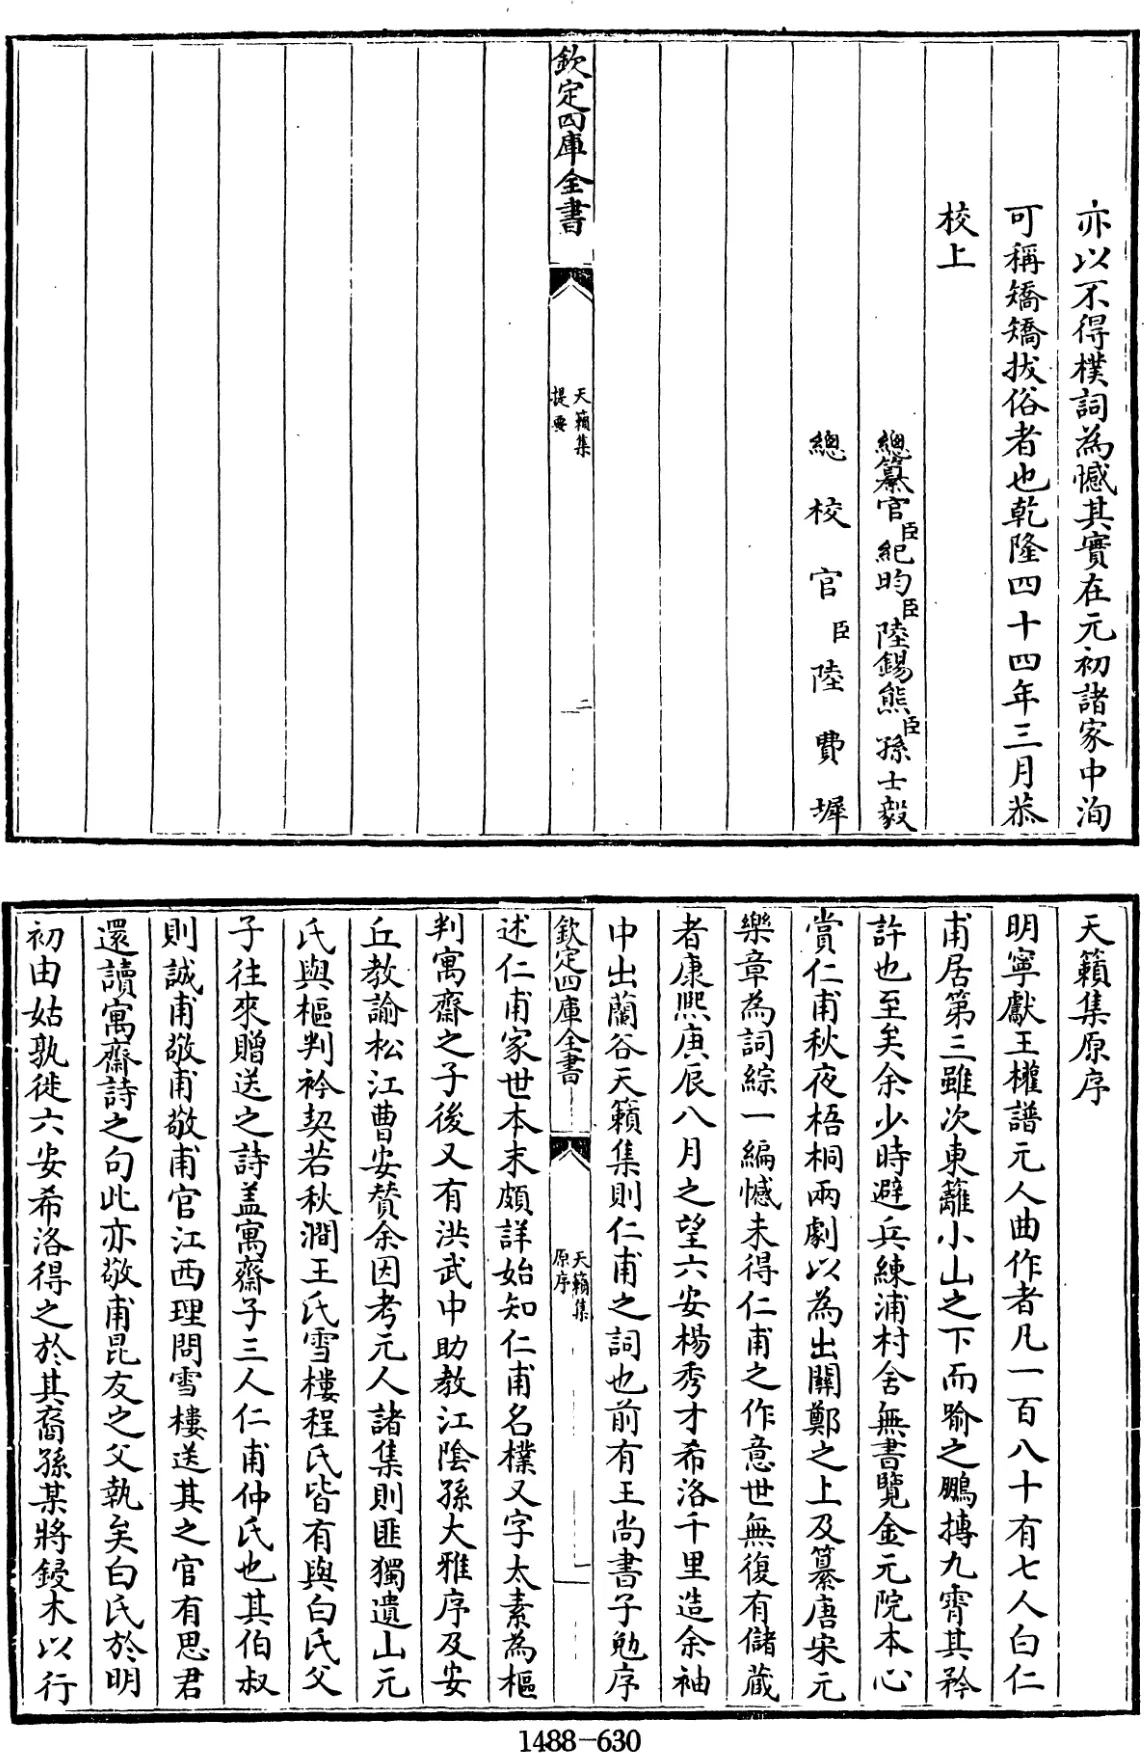 亦以不得樸詞為憾其實在元初諸家中洵
可稱矯矯拔俗者也乾隆四十四年三月恭
校上
總纂官臣紀昀臣陸錫熊臣孫士毅
總校官臣陸費墀
欽定四庫全書
天籟集
提要
二
天籟集原序
明寧獻王權譜元人曲作者凡一百八十有七人白仁
甫居第三雖次東籬小山之下而喻之鵬摶九霄其矜
許也至矣余少時避兵練浦村舍無書覽金元院本心
賞仁甫秋夜梧桐兩劇以為出關鄭之上及纂唐宋元
樂章為詞綜一編憾未得仁甫之作意世無復有儲藏
者康熙庚辰八月之望六安楊秀才希洛千里造余袖
中出蘭谷天籟集則仁甫之詞也前有王尚書子勉序
欽定四庫全書
天籟集
原序
一
述仁甫家世本末頗詳始知仁甫名樸又字太素為樞
判寓齋之子後又有洪武中助教江陰孫大雅序及安
丘教諭松江曹安贊余因考元人諸集則匪獨遺山元
氏與樞判衿契若秋澗王氏雪樓程氏皆有與白氏父
子往來贈送之詩盖寓齋子三人仁甫仲氏也其伯叔
則誠甫敬甫敬甫官江西理問雪樓送其之官有思君
還讀寓齋詩之句此亦敬甫昆友之父執矣白氏於明
初由姑孰徙六安希洛得之於其裔孫某將鋟木以行
1488-630